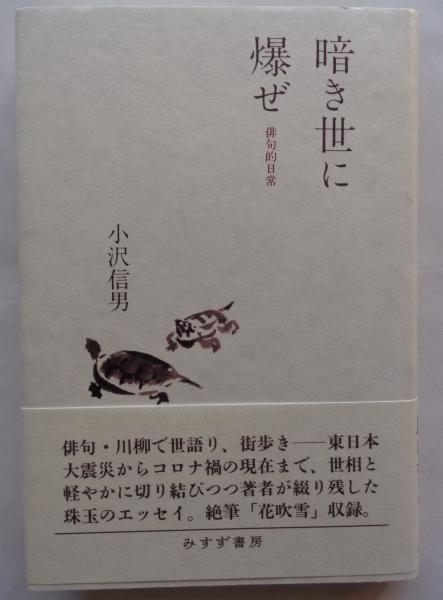 暗き世に
爆ぜ
俳句的日常
小沢信男
俳句・川柳で世語り、街歩き――東日本
大震災からコロナ禍の現在まで、世相と
軽やかに切り結びつつ著者が綴り残した
珠玉のエッセイ。絶筆「花吹雪」収録。
みすず書房